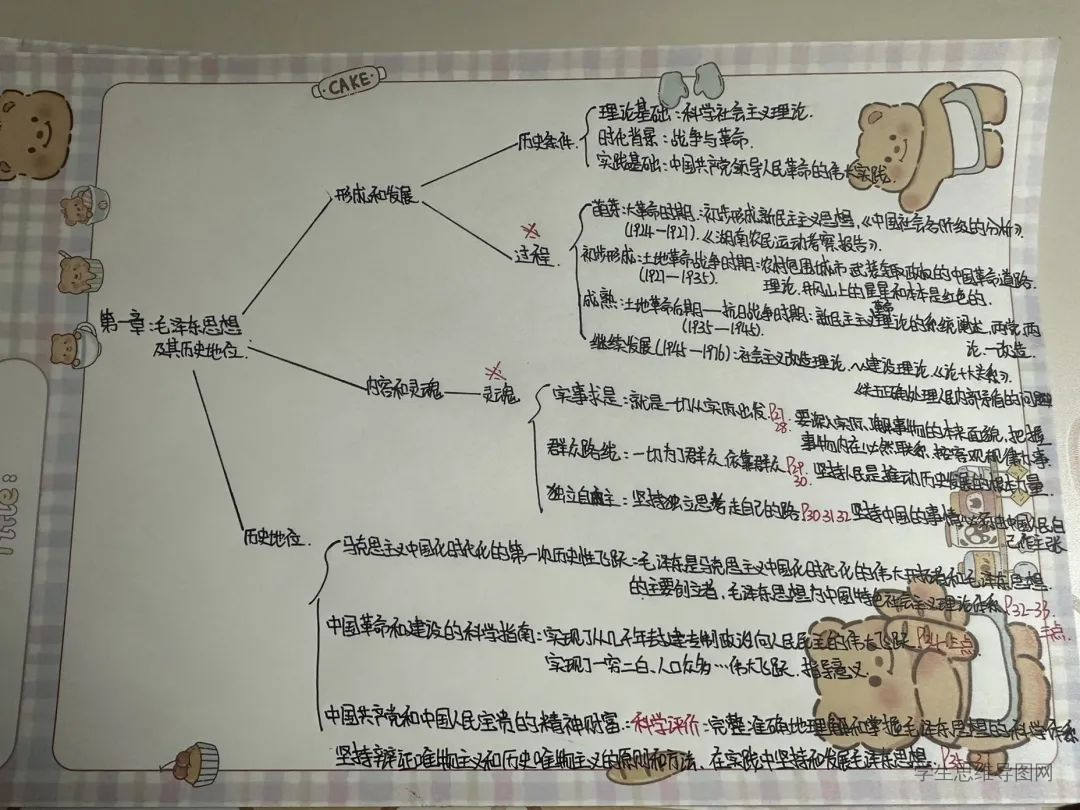 CAKE
历史条件
理论基础：科学社会主义理论.
时代背景：战争与革命.
实践基础：中国共产党领导人民革命的伟大实践.
形成和发展
过程.
萌芽：大革命时期：初步形成新民主主义思想，《中国社会各阶级的分析》.
(1924—1927).《湖南农民运动考察报告》.
初步形成：土地革命战争时期：农村包围城市 武装夺取政权的中国革命道路.
(1927—1935). 理论. 井冈山上的星星和本本是红色的.
成熟：土地革命后期——抗日战争时期：新民主主义革命理论的系统阐述，两党两
(1935—1945). 论. 一改造.
继续发展(1945—1976)：社会主义改造理论、~建设理论.《论十大关系》.
正确处理人民内部矛盾的问题
第一章：毛泽东思想
及其历史地位.
内容和灵魂
灵魂
实事求是：就是一切从实际出发 P27 28. 要深入实际了解事物的本来面貌，把握
事物内在必然联系，按客观规律办事.
群众路线：一切为了群众 依靠群众 P29 30. 坚持人民是推动历史发展的根本力量
独立自主：坚持独立思考 走自己的路 P30 31 32 坚持中国的事情必须由中国人民自
己作主张
历史地位.
马克思主义中国化时代化的第一次历史性飞跃：毛泽东是马克思主义中国化时代化的伟大开拓者和毛泽东思想
的主要创立者，毛泽东思想为中国特色社会主义理论体系 P32-33
三点.
中国革命和建设的科学指南：实现了从几千年封建专制政治向人民民主的伟大飞跃. P34 三点
实现了一穷二白、人口众多…伟大飞跃. 指导意义.
中国共产党和中国人民宝贵的精神财富：科学评价：完整准确地理解和掌握毛泽东思想的科学体系
坚持辩证唯物主义和历史唯物主义的原则和方法，在实践中坚持和发展毛泽东思想.
Title:
学生思维导图网